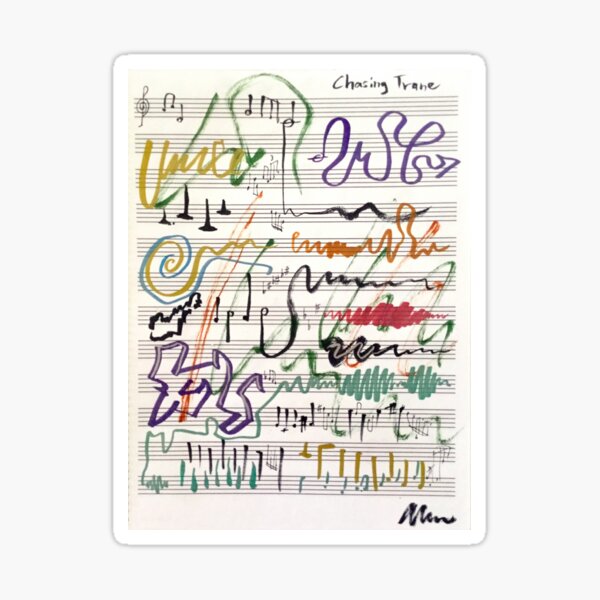 Chasing Trane